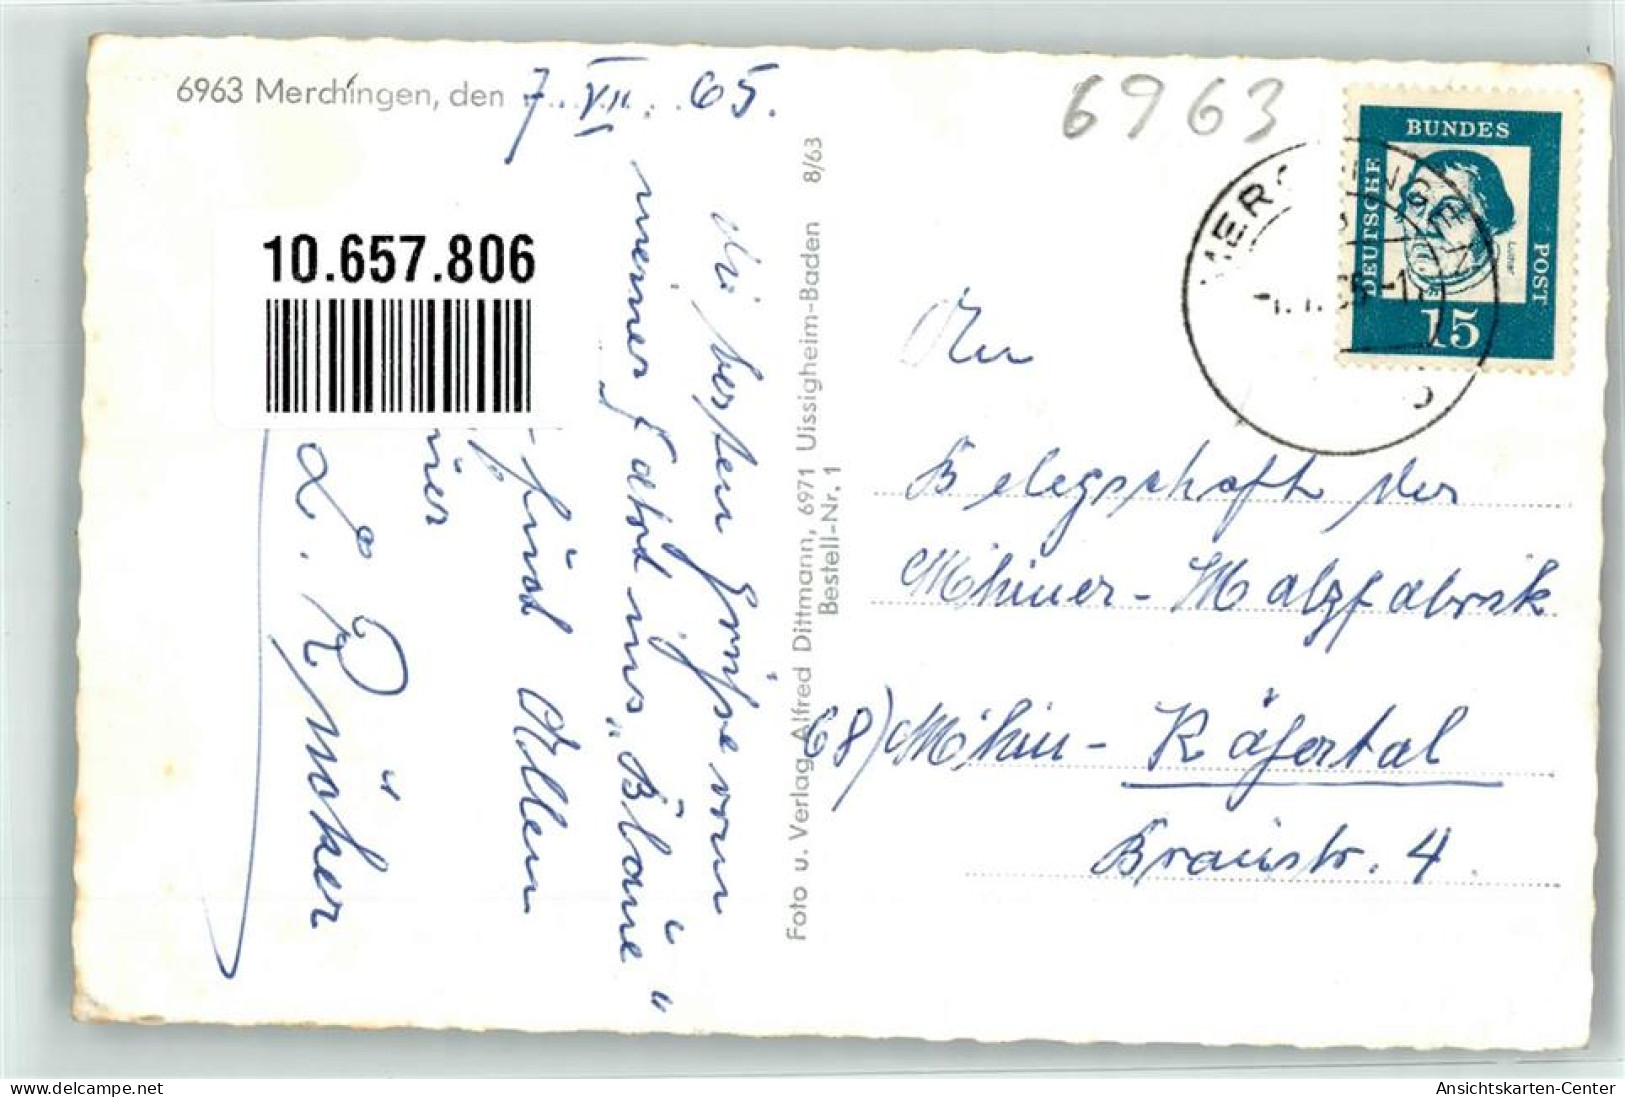 6963 Merchingen, den 7. VII. 65.
6963
10.657.806
die besten Grüße von
meiner Fahrt ins "Blaue"
send Allen
L. Rücker
Foto u. Verlag Alfred Dittmann, 6971 Uissigheim-Baden 8/63
Bestell-Nr. 1
BUNDES
DEUTSCHE
POST
Luther
15
MERCHINGEN
An
Belegschaft der
Mhimer-Malzfabrik
68) Mhim-Käfertal
Braustr. 4
delcampe.net
Ansichtskarten-Center